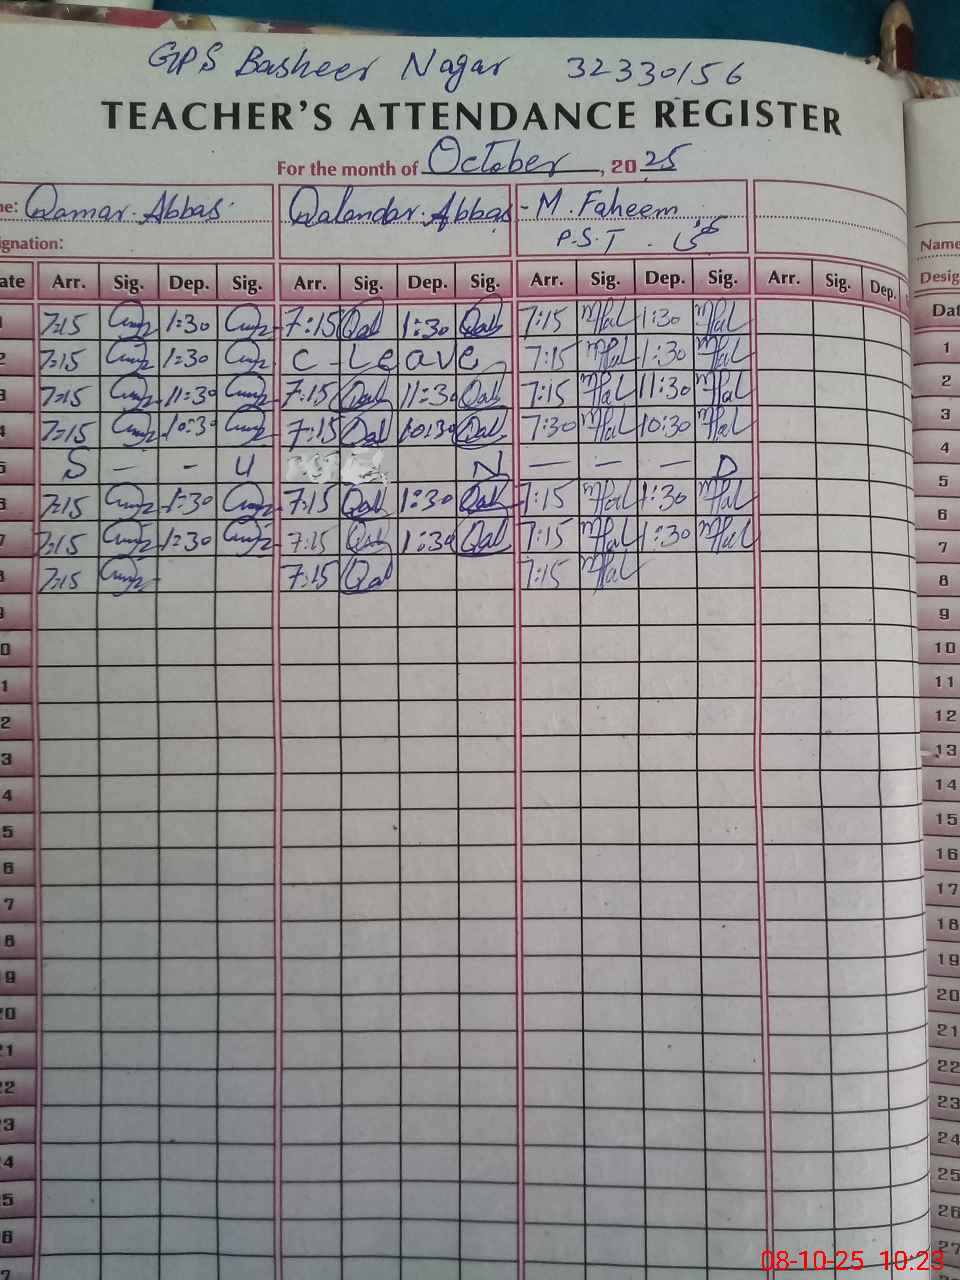 GPS Basheer Nagar 32330156
TEACHER'S ATTENDANCE REGISTER
For the month of October, 2025
ne: Qamar Abbas Qalandar Abbas - M. Faheem Name
ignation: P.S.T. Desig
ate Arr. Sig. Dep. Sig. Arr. Sig. Dep. Sig. Arr. Sig. Dep. Sig. Arr. Sig. Dep. Dat
1 7:15 1:30 7:15 Qal 1:30 Qal 7:15 1:30 1
2 7:15 1:30 C-Leave 7:15 1:30 2
3 7:15 11:30 7:15 Qal 11:30 Qal 7:15 11:30 3
4 7:15 10:30 7:15 Qal 10:30 Qal 7:30 10:30 4
5 S - - U N - - - D 5
6 7:15 1:30 7:15 Qal 1:30 Qal 7:15 1:30 6
7 7:15 1:30 7:15 Qal 1:30 Qal 7:15 1:30 7
8 7:15 7:15 Qal 7:15 8
9 9
0 10
1 11
2 12
3 13
4 14
5 15
6 16
7 17
8 18
19 19
20 20
21 21
22 22
23 23
24 24
25 25
6 26
7 27
08-10-25 10:23